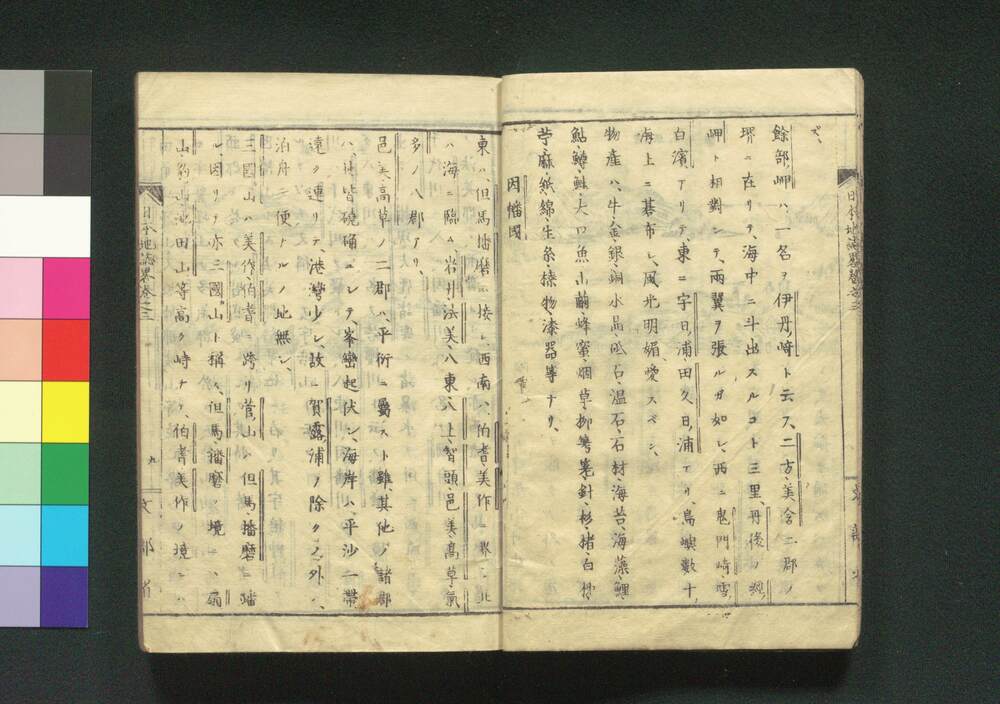 ズ、
餘部岬ハ、一名ヲ伊丹崎ト云フ、二方、美含二郡ノ
堺ニ在リテ、海中ニ斗出スルコト三里、丹後ノ經
岬ト相對シテ、兩翼ヲ張ルガ如シ、西ニ鬼門崎、雪
白濱アリテ、東ニ宇日浦、田久日浦アリ、島嶼數十、
海上ニ碁布シ、風光明媚、愛スベシ、
物產ハ、牛、金、銀、銅、水晶、砥石、温石、石材、海苔、海藻、鯉、
鮎、鱒、鮭、大口魚、山繭、蜂蜜、烟草、柳筥、針、杉、楮、白柹、
苧麻、紙、綿、生糸、漆物、漆器等ナリ、
因幡國
東ハ、但馬、播磨ニ接シ、西南ハ、伯耆、美作ノ界ニ、北
ハ海ニ臨ム、岩井、法美、八東、八上、智頭、邑美、高草、氣
多ノ八郡アリ、
邑美、高草ノ二郡ハ、平衍ニ屬スト雖、其他ノ諸郡
ハ、皆磽确ニシテ、峯巒起伏シ、海岸ハ、平沙一帶
遠ク連リテ、港灣少シ、故ニ賀露浦ノ除クノ外ハ、
泊舟ニ便ナルノ地無シ、
三國山ハ、美作、伯耆ニ跨リ、菅山ハ、但馬、播磨ニ蟠
ル、因リテ亦三國山ト稱ス、但馬、播磨ノ境ニハ、扇
山、池田山等高ク峙チ、伯耆、美作ノ境ニハ
日本地誌畧卷之三
九
文部省
日本地誌畧卷之三
文部省